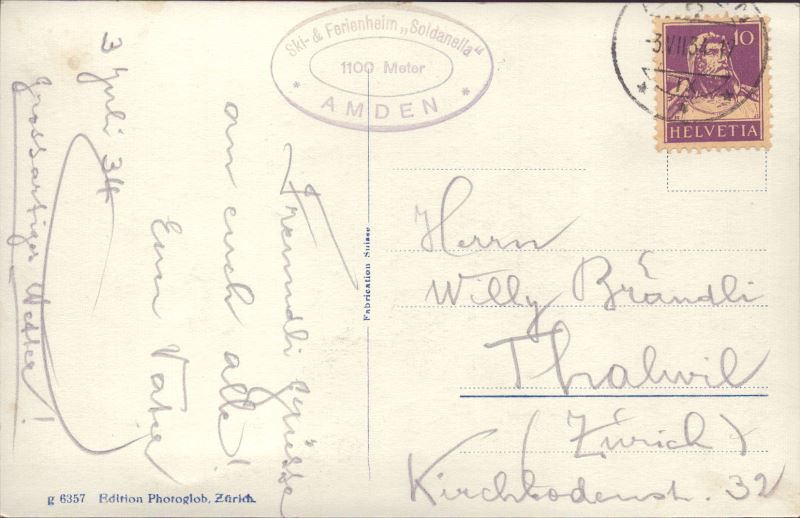 Ski- & Ferienheim „Soldanella"
1100 Meter
* AMDEN *
10
HELVETIA
3 Juli 34
Grossartiges Wetter!
Freundli Grüsse
an euch alle!
Euer Vater
Herrn
Willy Brändli
Thalwil
(Zürich)
Kirchbodenstr. 32
Fabrication Suisse
g 6357 Edition Photoglob, Zürich.